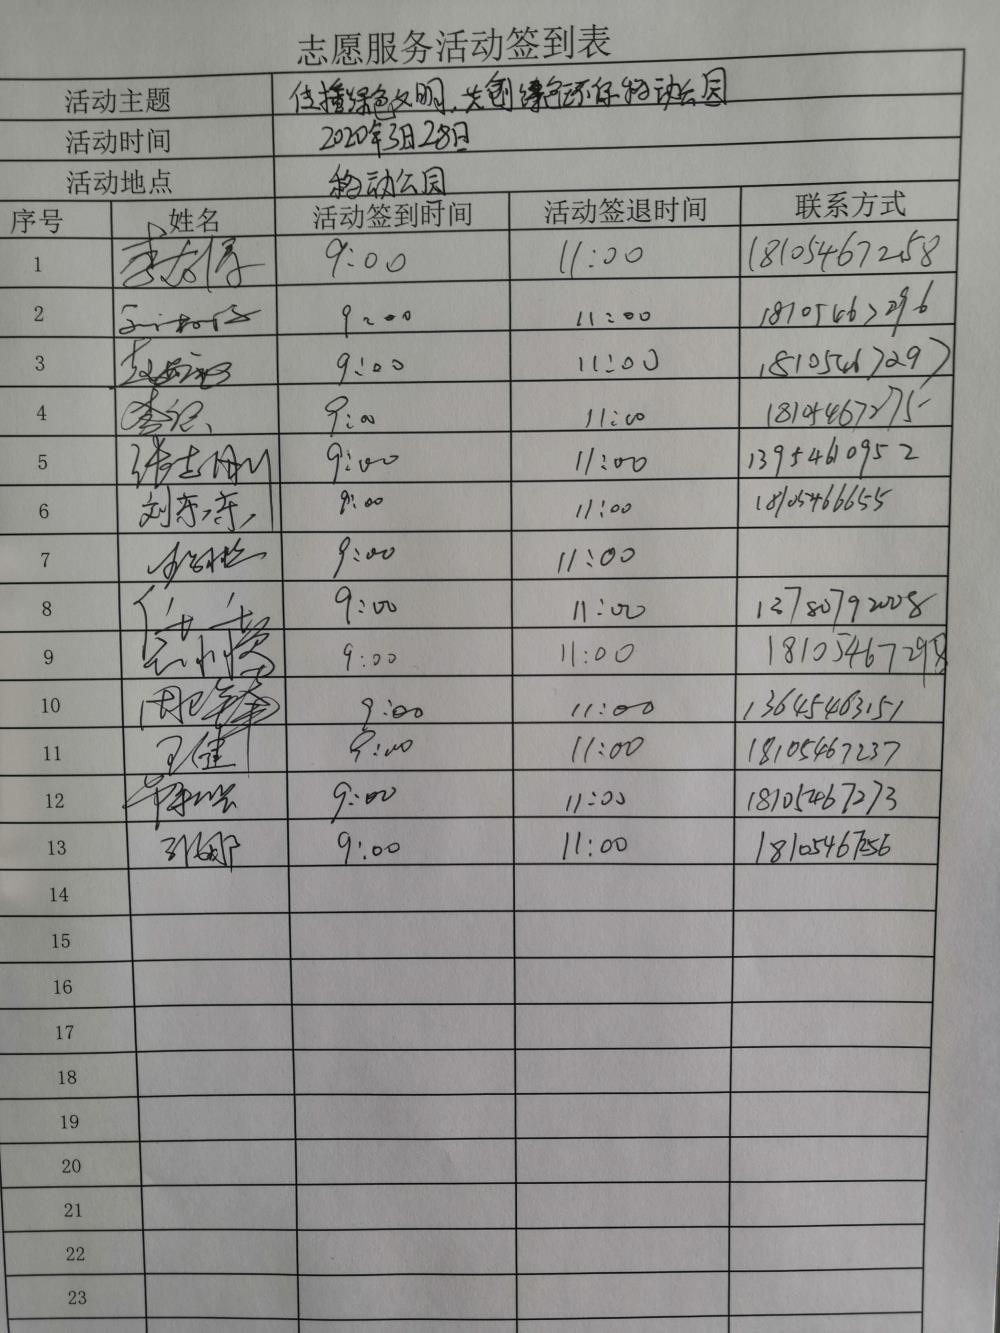 志愿服务活动签到表
活动主题 传播绿色文明,共创绿色环保移动公园
活动时间 2020年3月28日
活动地点 移动公园
序号 姓名 活动签到时间 活动签退时间 联系方式
1 9:00 11:00 18105467258
2 9:00 11:00 18105467296
3 9:00 11:00 18105467297
4 9:00 11:00 18105467275
5 9:00 11:00 13954610952
6 刘东东 9:00 11:00 18105466655
7 9:00 11:00
8 9:00 11:00 13780792008
9 9:00 11:00 18105467298
10 9:00 11:00 13645463151
11 王健 9:00 11:00 18105467237
12 9:00 11:00 18105467273
13 9:00 11:00 18105467256
14
15
16
17
18
19
20
21
22
23